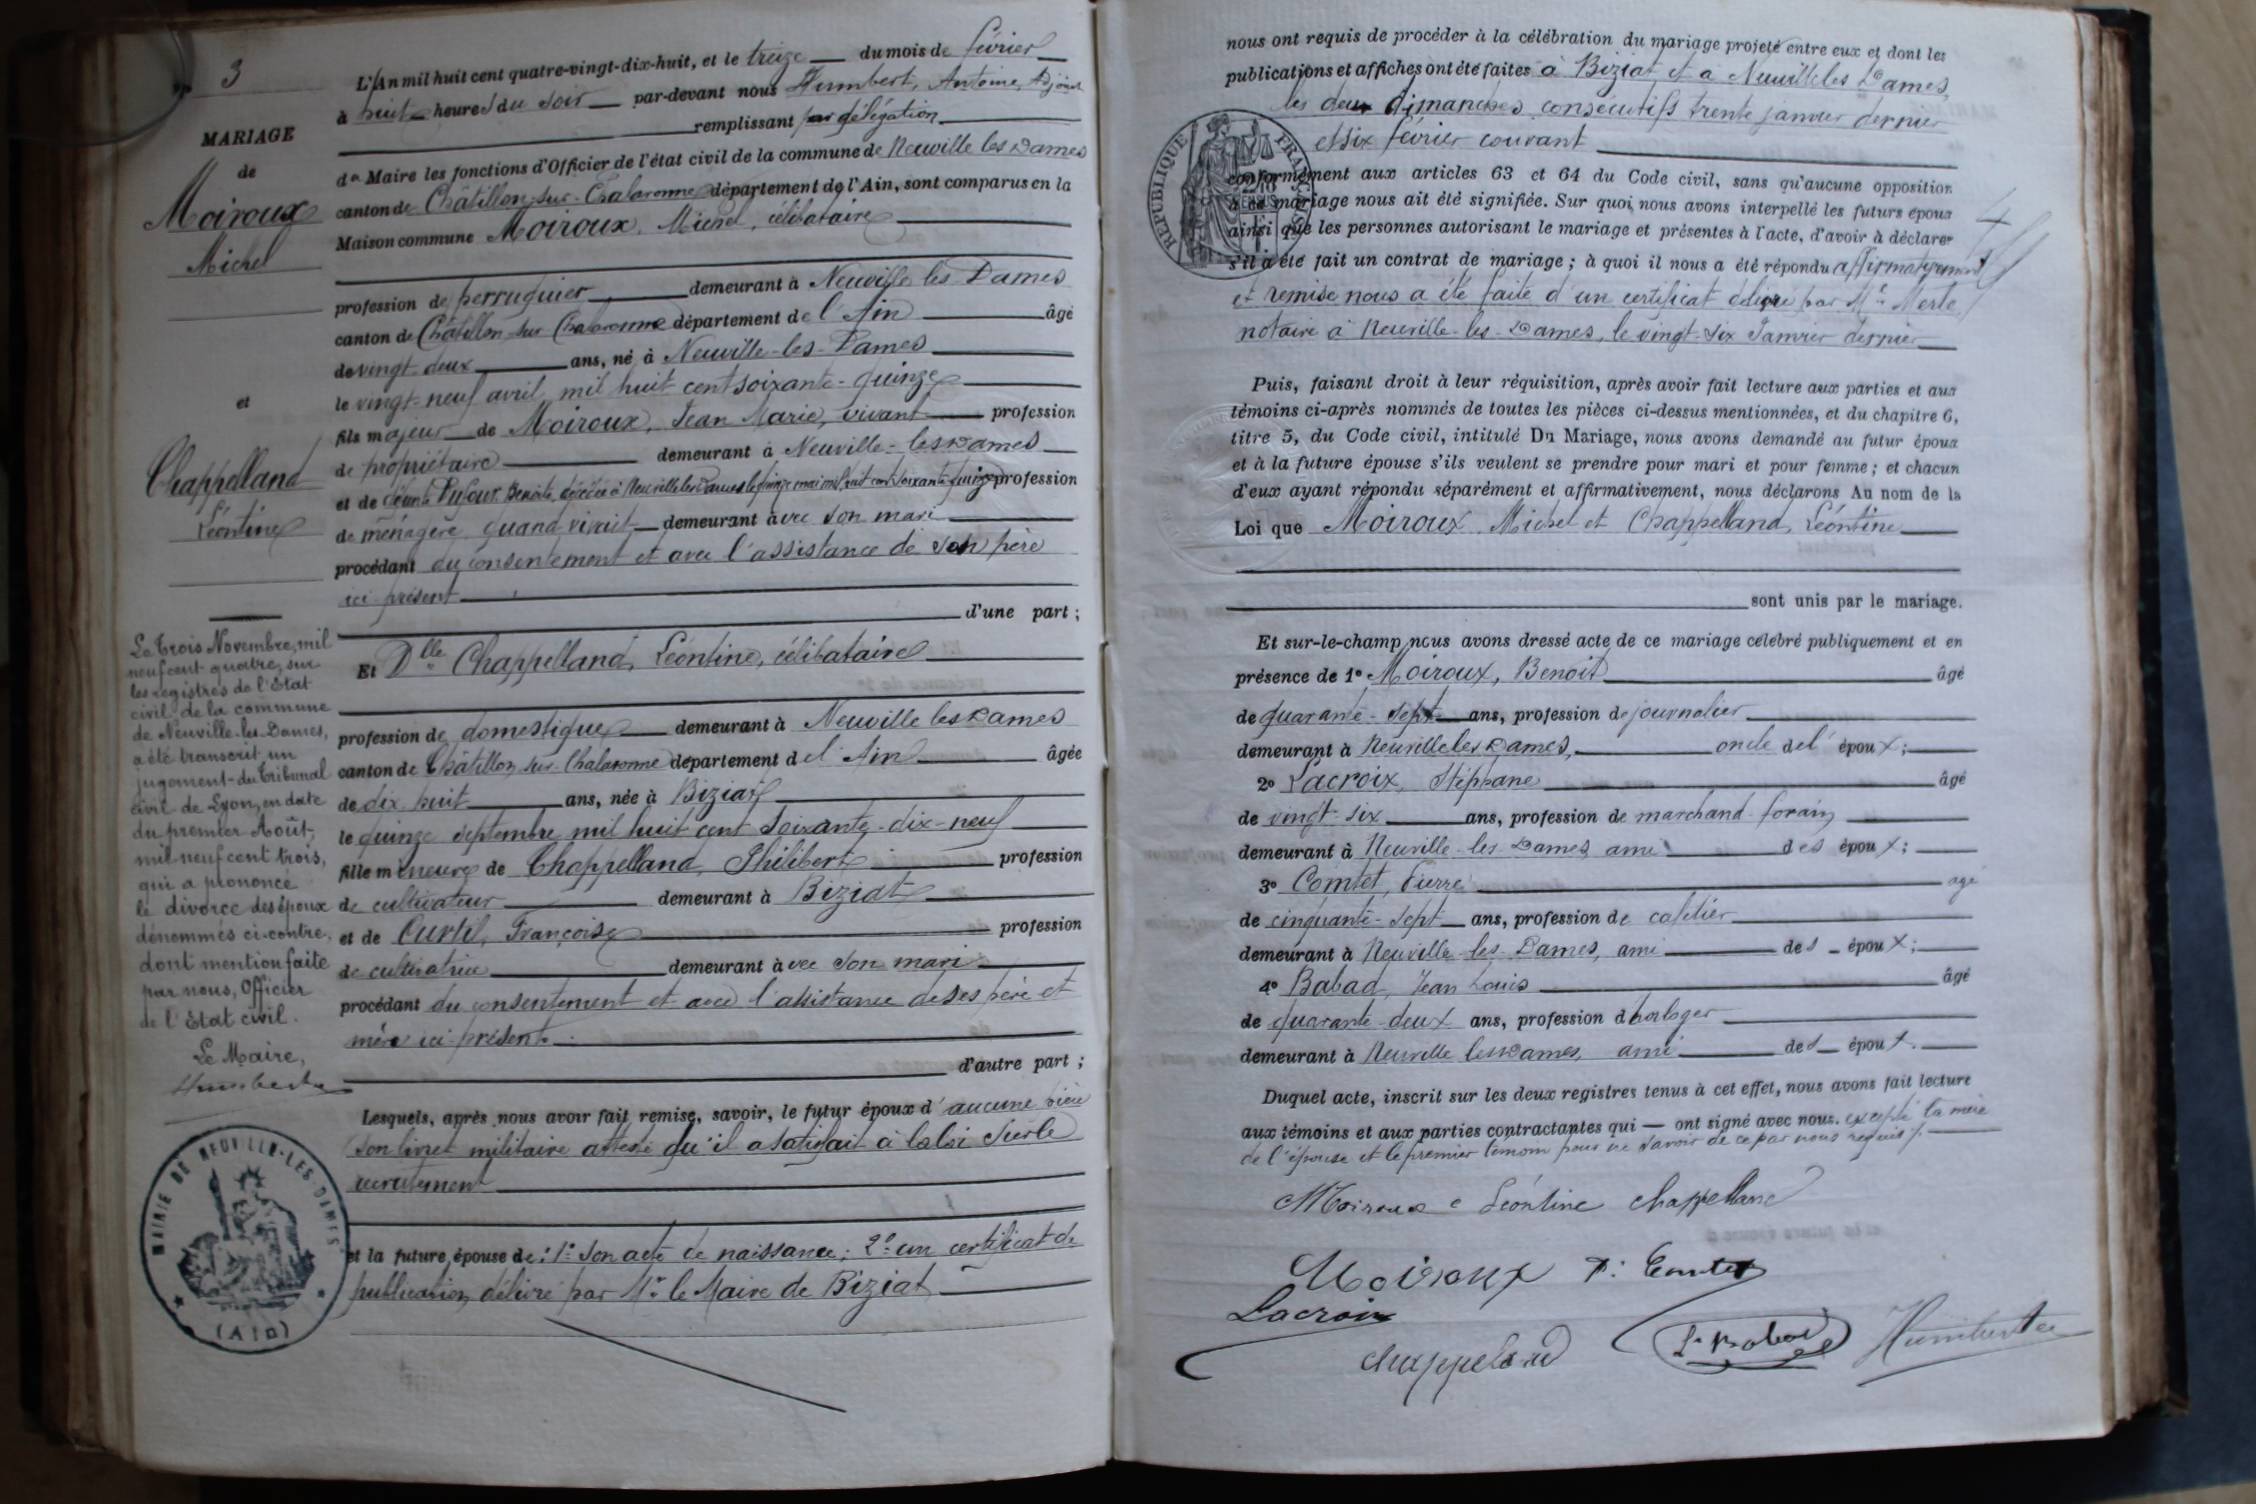 3
MARIAGE
de
Moiroux
Michel
et
Chappelland
Léontine
Le trois Novembre, mil
neuf cent quatre, sur
les registres de l'Etat
civil de la commune
de Neuville-les-Dames,
a été transcrit un
jugement du Tribunal
civil de Lyon, en date
du premier Août,
mil neuf cent trois,
qui a prononcé
le divorce des époux
dénommés ci-contre,
dont mention faite
par nous, Officier
de l'Etat civil.
Le Maire,
Humbert
MAIRIE DE NEUVILLE-LES-DAMES
(AIN)
L'An mil huit cent quatre-vingt-dix-huit, et le treize du mois de février
à huit heures du soir par-devant nous Humbert, Antoine, Adjoint
remplissant par délégation
du Maire les fonctions d'Officier de l'état civil de la commune de Neuville les Dames
canton de Châtillon-sur-Chalaronne département de l'Ain, sont comparus en la
Maison commune Moiroux, Michel, célibataire
profession de perruquier demeurant à Neuville les Dames
canton de Châtillon sur Chalaronne département de l'Ain âgé
de vingt deux ans, né à Neuville-les-Dames
le vingt-neuf avril mil huit cent soixante-quinze
fils majeur de Moiroux, Jean Marie, vivant profession
de propriétaire demeurant à Neuville-les Dames
et de défunte Dufour, Benoite, décédée à Neuville les Dames le quinze mai mil huit cent soixante quinze profession
de ménagère quand vivait demeurant avec son mari
procédant du consentement et avec l'assistance de son père
ici présent
d'une part ;
Et Dlle Chappelland, Léontine, célibataire
profession de domestique demeurant à Neuville les Dames
canton de Châtillon sur Chalaronne département de l'Ain âgée
de dix huit ans, née à Biziat
le quinze septembre mil huit cent soixante-dix-neuf
fille mineure de Chappelland, Philibert profession
de cultivateur demeurant à Biziat
et de Curtil, Françoise profession
de cultivatrice demeurant avec son mari
procédant du consentement et avec l'assistance de ses père et
mère ici présents
d'autre part ;
Lesquels, après nous avoir fait remise, savoir, le futur époux d'aucune pièce
son livret militaire atteste qu'il a satisfait à la loi sur le
recrutement
et la future épouse de : 1° son acte de naissance ; 2° un certificat de
publication délivré par Mr le Maire de Biziat
nous ont requis de procéder à la célébration du mariage projeté entre eux et dont les
publications et affiches ont été faites à Biziat et à Neuville les Dames
les deux dimanches consécutifs trente janvier dernier
et six février courant
REPUBLIQUE FRANÇAISE
conformément aux articles 63 et 64 du Code civil, sans qu'aucune opposition
à ce mariage nous ait été signifiée. Sur quoi, nous avons interpellé les futurs époux
ainsi que les personnes autorisant le mariage et présentes à l'acte, d'avoir à déclarer
s'il a été fait un contrat de mariage ; à quoi il nous a été répondu affirmativement
et remise nous a été faite d'un certificat délivré par Me Merle
notaire à Neuville-les-Dames, le vingt-six Janvier dernier
Puis, faisant droit à leur réquisition, après avoir fait lecture aux parties et aux
témoins ci-après nommés de toutes les pièces ci-dessus mentionnées, et du chapitre 6,
titre 5, du Code civil, intitulé Du Mariage, nous avons demandé au futur époux
et à la future épouse s'ils veulent se prendre pour mari et pour femme ; et chacun
d'eux ayant répondu séparément et affirmativement, nous déclarons Au nom de la
Loi que Moiroux Michel et Chappelland, Léontine
sont unis par le mariage.
Et sur-le-champ nous avons dressé acte de ce mariage célébré publiquement et en
présence de 1° Moiroux, Benoit âgé
de quarante-sept ans, profession de journalier
demeurant à Neuville les Dames, oncle de l'époux ;
2° Lacroix, Stéphane âgé
de vingt-six ans, profession de marchand forain
demeurant à Neuville-les-Dames, ami des époux ;
3° Comtet, Pierre âgé
de cinquante-sept ans, profession de cafetier
demeurant à Neuville-les-Dames, ami des époux ;
4° Babad, Jean Louis âgé
de quarante-deux ans, profession d'horloger
demeurant à Neuville les Dames, ami des époux.
Duquel acte, inscrit sur les deux registres tenus à cet effet, nous avons fait lecture
aux témoins et aux parties contractantes qui ont signé avec nous. excepté la mère
de l'épouse et le premier témoin pour ne savoir de ce par nous requis
Moiroux Léontine Chappelland
Moiroux P. Comtet
Lacroix
Chappeland
L. Babad
Humbert